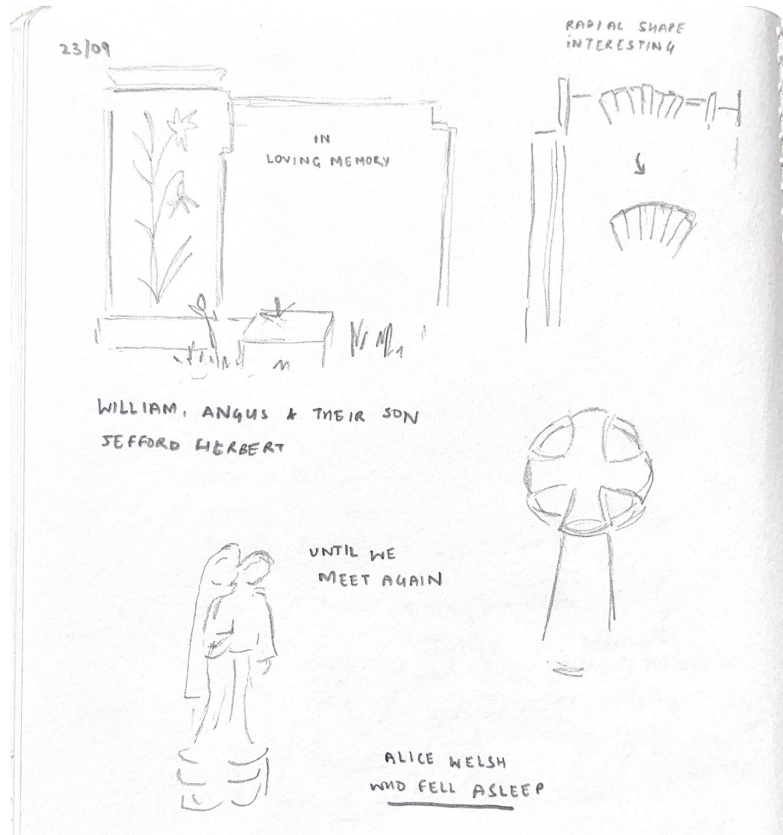 23/09
RADIAL SHAPE
INTERESTING
IN
LOVING MEMORY
WILLIAM, ANGUS & THEIR SON
JEFFORD HERBERT
UNTIL WE
MEET AGAIN
ALICE WELSH
WHO FELL ASLEEP